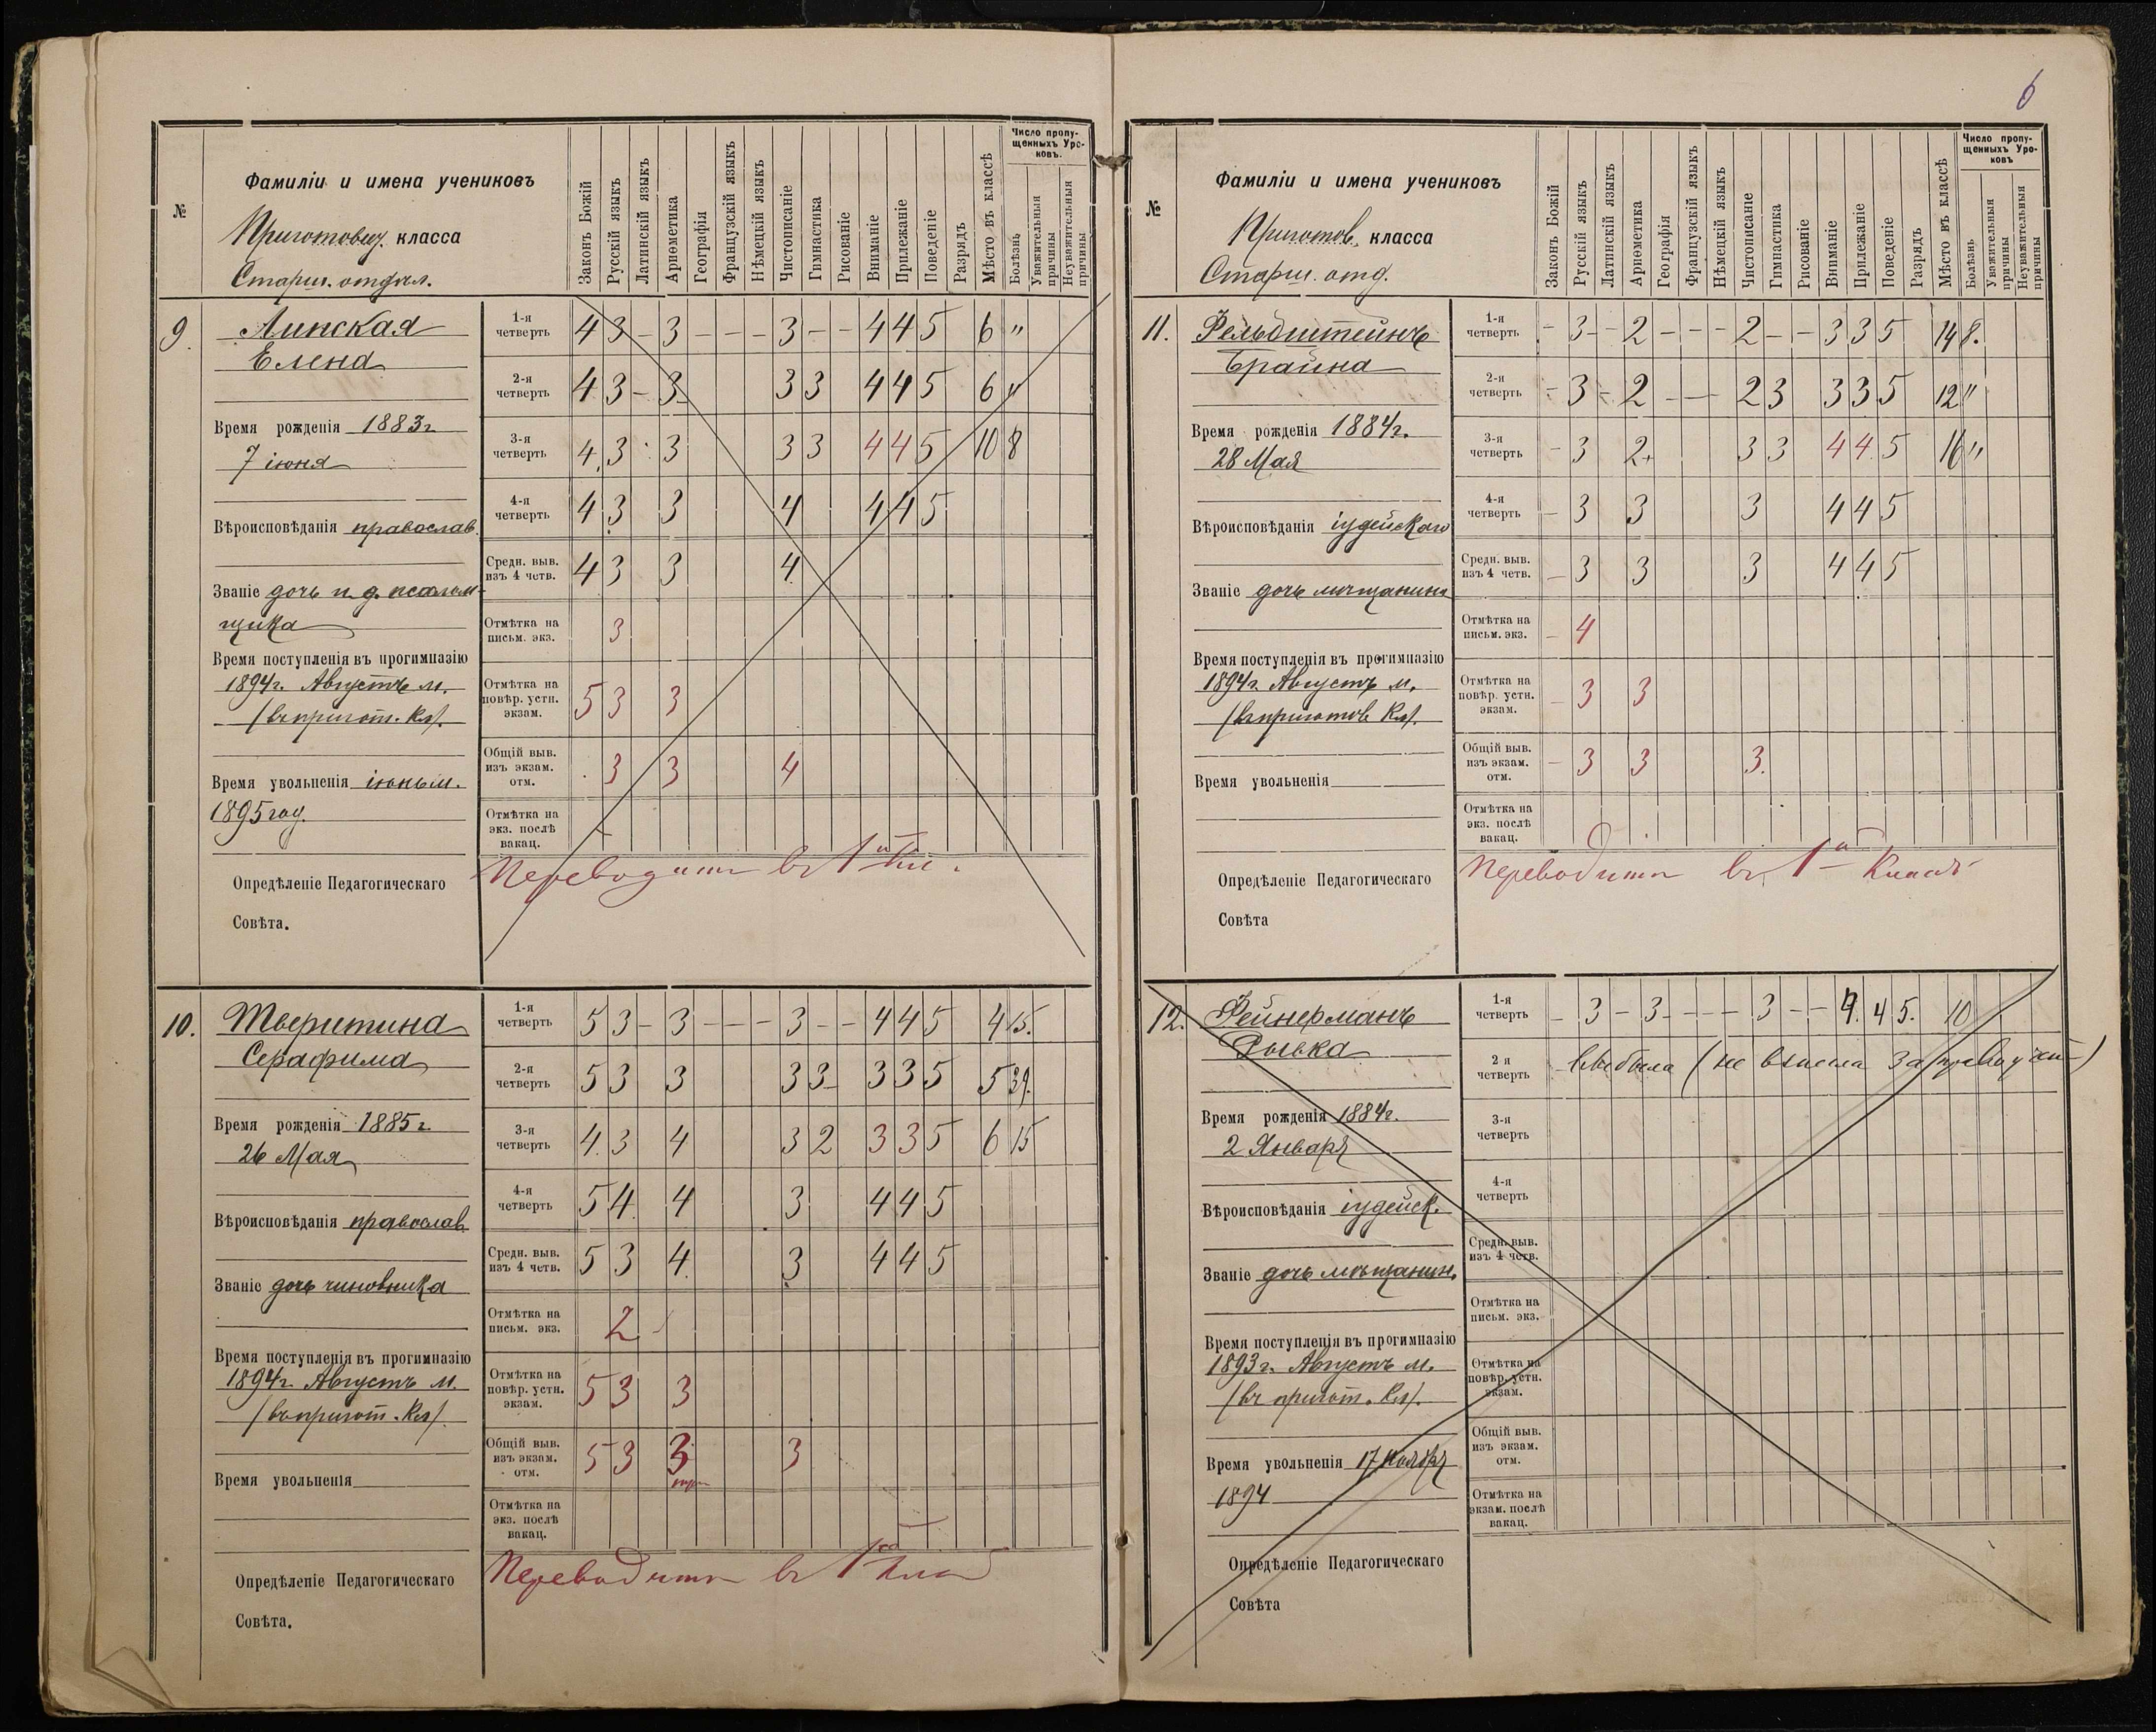 6
№
Фамиліи и имена учениковъ
Приготовит. класса
Старш. отдѣл.
Законъ Божій
Русскій языкъ
Латинскій языкъ
Ариѳметика
Географія
Французскій языкъ
Нѣмецкій языкъ
Чистописаніе
Гимнастика
Рисованіе
Вниманіе
Прилежаніе
Поведеніе
Разрядъ
Мѣсто въ классѣ
Число пропу-
щенныхъ Уро-
ковъ.
Болѣзнь
Уважительныя причины
Неуважительныя причины
9.
Липская
Елена
Время рожденія 1883 г
7 іюня
Вѣроисповѣданія православ.
Званіе дочь и. д. псалом-
щика
Время поступленія въ прогимназію
1894 г. Августъ м.
(въ пригот. кл).
Время увольненія іюнь м.
1895 год.
Опредѣленіе Педагогическаго
Совѣта.
1-я четверть 4 3 - 3 - - - 3 - - 4 4 5 6 "
2-я четверть 4 3 - 3 3 3 4 4 5 6 "
3-я четверть 4 3 3 3 3 4 4 5 10 8
4-я четверть 4 3 3 4 4 4 5
Средн. выв. изъ 4 четв. 4 3 3 4
Отмѣтка на письм. экз. 3
Отмѣтка на повѣр. устн. экзам. 5 3 3
Общій выв. изъ экзам. отм. 3 3 4
Отмѣтка на экз. послѣ вакац.
Переводится въ 1й кл.
10.
Тверитина
Серафима
Время рожденія 1885 г
26 Мая
Вѣроисповѣданія православ
Званіе дочь чиновника
Время поступленія въ прогимназію
1894 г. Августъ м.
(въ пригот. кл).
Время увольненія
Опредѣленіе Педагогическаго
Совѣта.
1-я четверть 5 3 - 3 - - - 3 - - 4 4 5 4 15.
2-я четверть 5 3 3 3 3 3 3 5 5 39.
3-я четверть 4 3 4 3 2 3 3 5 6 15
4-я четверть 5 4 4 3 4 4 5
Средн. выв. изъ 4 четв. 5 3 4 3 4 4 5
Отмѣтка на письм. экз. 2
Отмѣтка на повѣр. устн. экзам. 5 3 3
Общій выв. изъ экзам. отм. 5 3 3 3
Отмѣтка на экз. послѣ вакац.
Переводится въ
№
Фамиліи и имена учениковъ
Приготов. класса
Старш. отд.
Законъ Божій
Русскій языкъ
Латинскій языкъ
Ариѳметика
Географія
Французскій языкъ
Нѣмецкій языкъ
Чистописаніе
Гимнастика
Рисованіе
Вниманіе
Прилежаніе
Поведеніе
Разрядъ
Мѣсто въ классѣ
Число пропу-
щенныхъ Уро-
ковъ
Болѣзнь
Уважительныя причины
Неуважительныя причины
11.
Фельдштейнъ
Брайна
Время рожденія 1884 г.
28 Мая
Вѣроисповѣданія іудейскаго
Званіе дочь мѣщанина
Время поступленія въ прогимназію
1894 г. Августъ м.
(въ приготов. кл).
Время увольненія
Опредѣленіе Педагогическаго
Совѣта
1-я четверть - 3 - 2 - - - 2 - - 3 3 5 14 8.
2-я четверть - 3 - 2 - - 2 3 3 3 5 12 "
3-я четверть - 3 2+ 3 3 4 4 5 16 "
4-я четверть - 3 3 3 4 4 5
Средн. выв. изъ 4 четв. - 3 3 3 4 4 5
Отмѣтка на письм. экз. - 4
Отмѣтка на повѣр. устн. экзам. - 3 3
Общій выв. изъ экзам. отм. - 3 3 3.
Отмѣтка на экз. послѣ вакац.
Переводится въ 1й классъ
12.
Фейнерманъ
Рывка
Время рожденія 1884 г.
2 Января
Вѣроисповѣданія іудейск.
Званіе дочь мѣщанин.
Время поступленія въ прогимназію
1893 г. Августъ м.
(въ пригот. кл).
Время увольненія 17 Ноября
1894
Опредѣленіе Педагогическаго
Совѣта
1-я четверть - 3 - 3 - - - 3 - - 4. 4 5. 10
2 я четверть Выбыла (не внесла за
3-я четверть
4-я четверть
Средн. выв. изъ 4 четв.
Отмѣтка на письм. экз.
Отмѣтка на повѣр. устн. экзам.
Общій выв. изъ экзам. отм.
Отмѣтка на экзам. послѣ вакац.